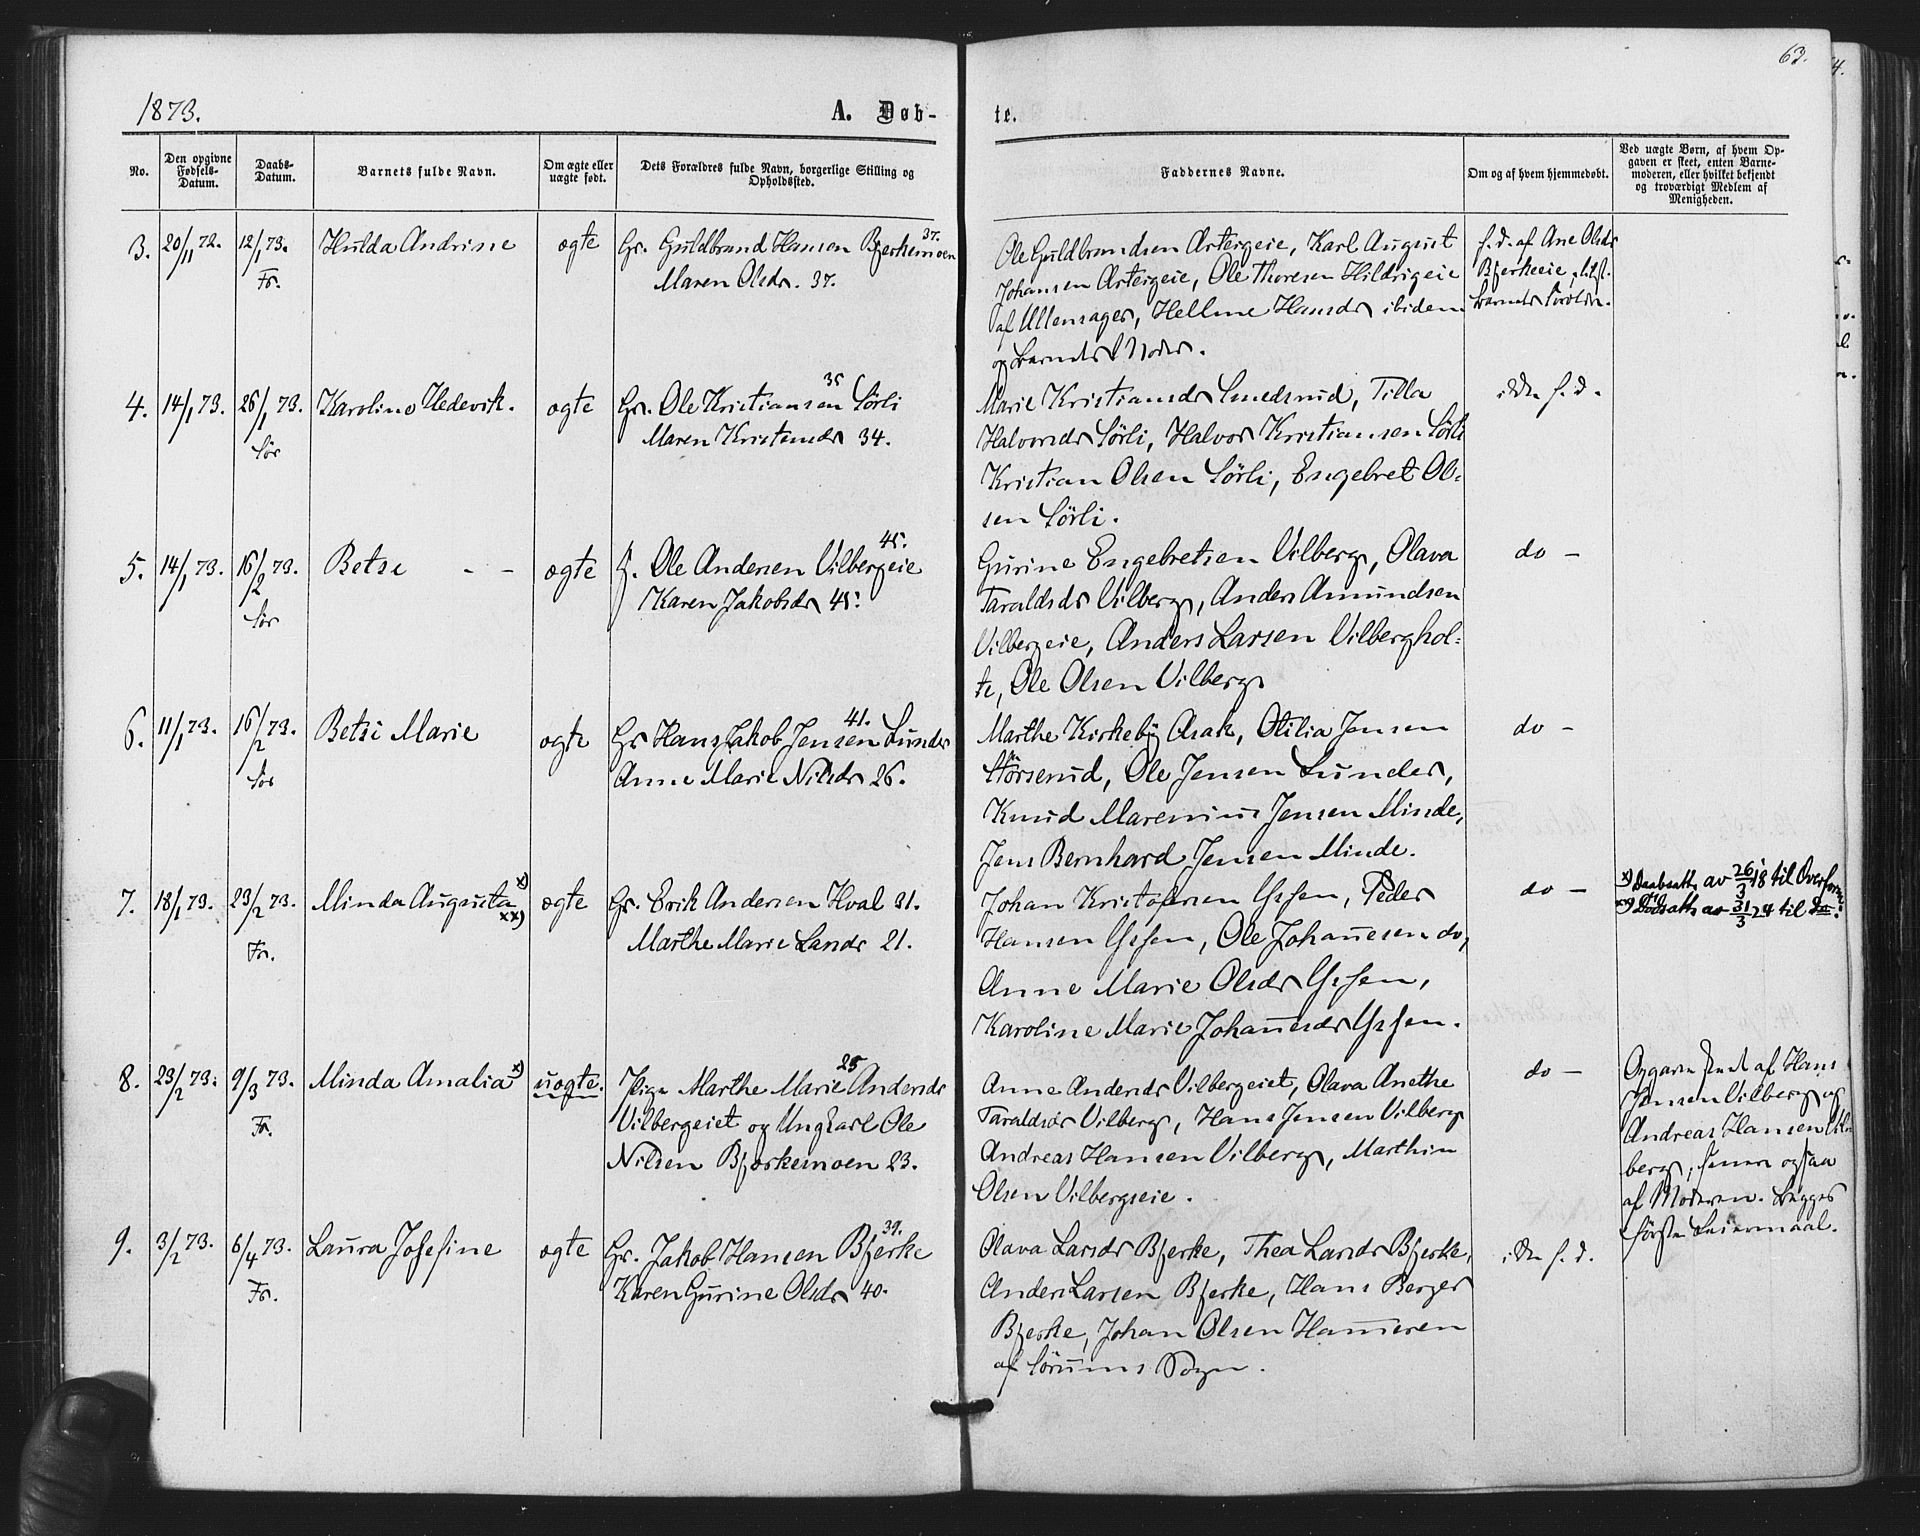 63.
4.
1873.
A. Døb-
te.
No.
Den opgivne Fødsels-Datum.
Daabs-Datum.
Barnets fulde Navn.
Om ægte eller uægte født.
Dets Forældres fulde Navn, borgerlige Stilling og Opholdssted.
Faddernes Navne.
Om og af hvem hjemmedøbt.
Ved uægte Børn, af hvem Op-
gaven er skeet, enten Barne-
moderen, eller hvilket bekjendt
og troværdigt Medlem af
Menigheden.
3. 20/11 72. 12/1 73. Fr. Hulda Andrine ægte
Gr. Guldbrand Hansen Bjerkemoen 37.
Maren Olsdr. 37.
Ole Guldbrandsen Astergeie, Karl August
Johansen Astergeie, Ole Thoresen Hildrigeie
af Ullensager, Helline Hansdr ibidem
og barnets Moder.
f. d. af Ane Olsdr
Bjerkeeie,
barnets
4. 14/1 73. 26/1 73. Sør Karoline Hedevik. ægte
Gr. Ole Kristiansen 35 Sörli
Maren Kristensdr 34.
Marie Kristiansdr Smedsrud, Tilla
Halvorsdr Sörli, Halvor Kristiansen Sörli
Kristian Olsen Sörli, Engebret Ol-
sen Sörli.
ikke f. d.
5. 14/1 73. 16/2 73. Sør Betsi - - ægte
J. Ole Andersen Vilbergeie 45.
Karen Jakobsdr 45.
Gurine Engebretsen Vilberg, Olava
Taraldsdr Vilberg, Anders Amundsen
Vilbergeie, Anders Larsen Vilberghol-
te, Ole Olsen Vilberg
do -
6. 11/1 73. 16/2 73. Sør Betsi Marie ægte
Gr Hans Jakob Jensen 41. Lunder
Anne Marie Nilsdr 26.
Marthe Kirkeby Asak, Otilia Jensen
Hörsrud, Ole Jensen Lunder,
Knud Marenius Jensen Minde,
Jens Bernhard Jensen Minde.
do -
7. 18/1 73. 23/2 73. Fr. Minda Augusta x) xx) ægte
Gr. Erik Andersen Hval 31.
Marthe Marie Larsdr 21.
Johan Kristofersen Ihsen, Peder
Hansen Ihsen, Ole Johannesen do,
Anne Marie Olsdr Ihsen,
Karoline Marie Johannesdr Ihsen.
do -
x) Daabsatt. av 26/3 18 til Overform:
xx) Daabsatt. av 31/3 24 til do.
8. 23/2 73. 9/3 73. Fr. Minda Amalia x) uægte.
Pige Marthe Marie 25 Andersdr
Vilbergeiet og Ungkarl Ole
Nilsen Bjerkemoen 23.
Anne Andersdr Vilbergeiet, Olava Anethe
Taraldsdr Vilberg, Hans Jensen Vilberg
Andreas Hansen Vilberg, Marthin
Olsen Vilbergseie.
do -
Opgaven skeet af Hans
Jensen Vilberg og
Andreas Hansen Vil-
berg, senere ogsaa
af Moderen. Begges
første Leiermaal.
9. 3/2 73. 6/4 73. Fr. Laura Josefine ægte
Gr. Jakob Hansen Bjerke 39.
Karen Gurine Olsdr 40.
Olava Larsdr Bjerke, Thea Larsdr Bjerke,
Anders Larsen Bjerke, Hans Berger
Bjerke, Johan Olsen Hammeren
af Sörums Sogn.
ikke f. d.